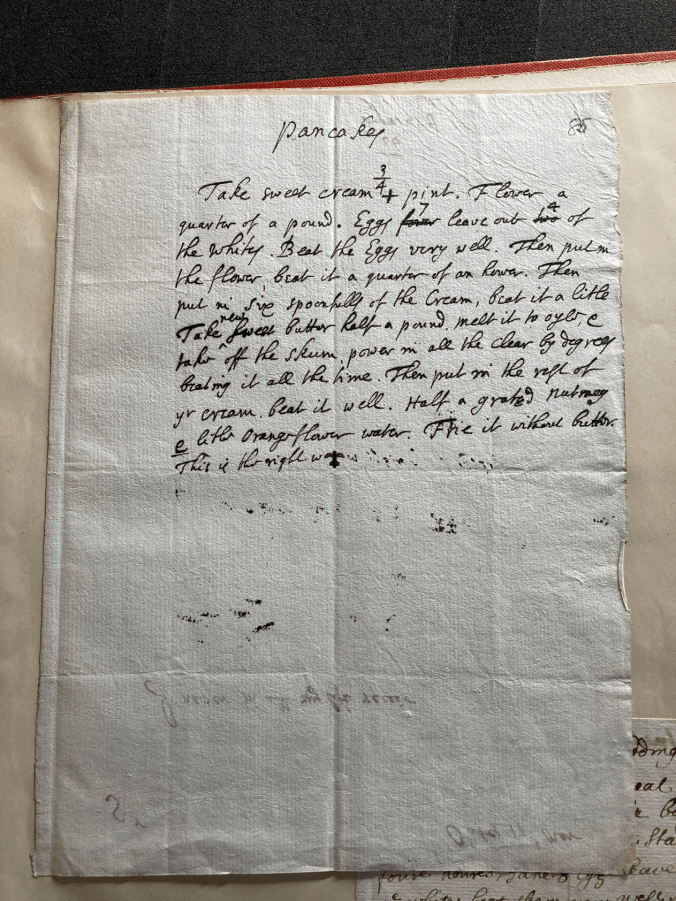 Pancakes
85
Take sweet cream 3/4 pint. Flower a
quarter of a pound. Eggs four 7 leave out two 4 of
the whites. Beat the Eggs very well. Then put in
the flower, beat it a quarter of an hower. Then
put in six spoonfulls of the Cream, beat it a litle
Take new sweet butter half a pound, melt it to oyle, &
take off the skum, power in all the clear by degrees
beating it all the time. Then put in the rest of
yr cream. beat it well. Half a grated nutmeg
& litle Orangeflower water. Frie it without butter.
This is the right way